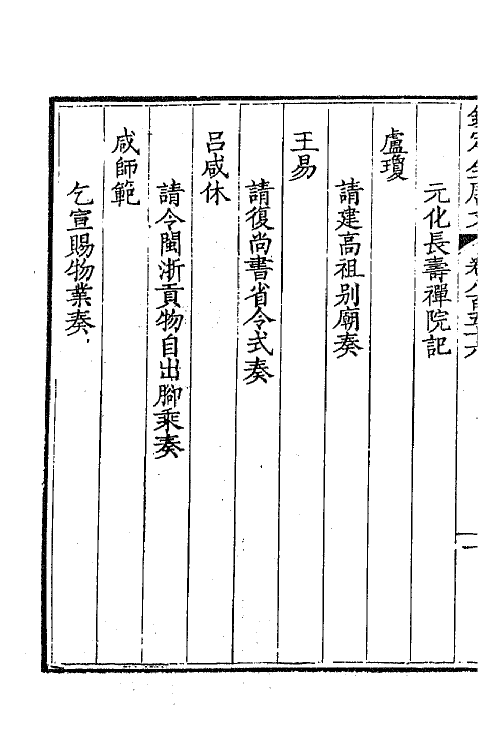 欽定全唐文 卷八百五十六 一
元化長壽禪院記
盧瓊
請建高祖別廟奏
王易
請復尚書省令式奏
呂咸休
請令閩浙貢物自出腳乘奏
咸師範
乞宣賜物業奏